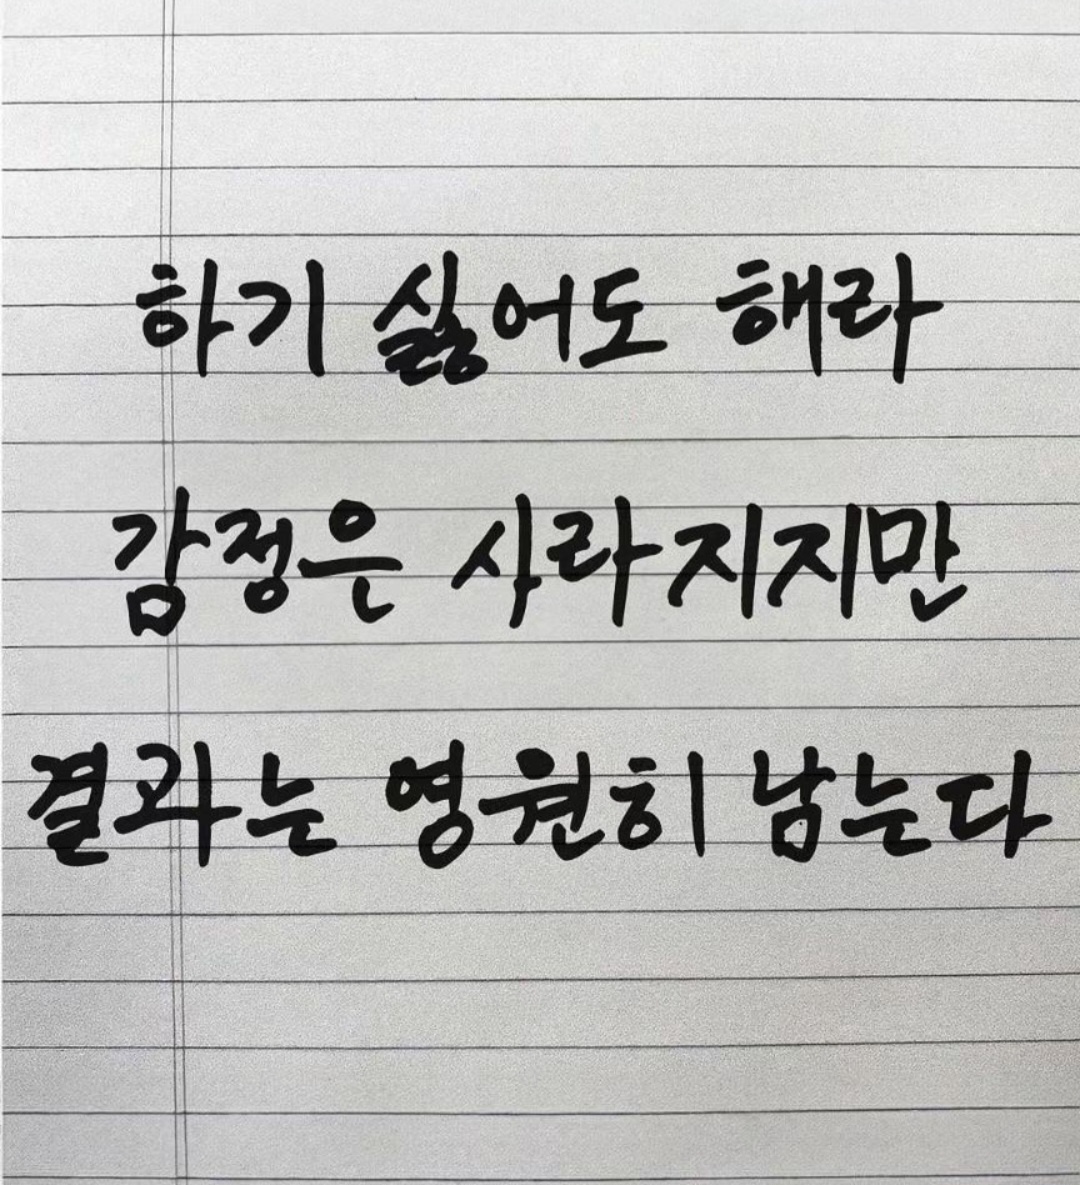 하기 싫어도 해라
감정은 사라지지만
결과는 영원히 남는다